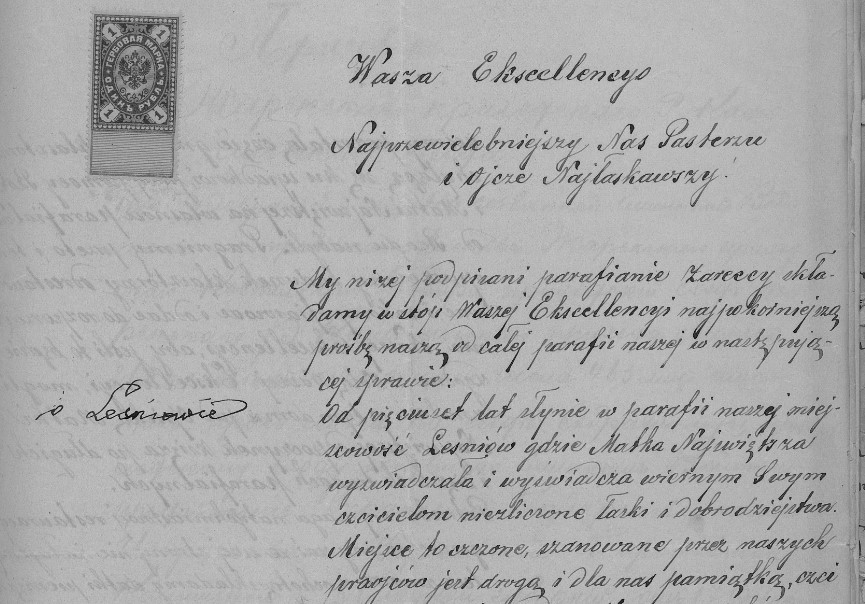 1 1
ГЕРБОВАЯ МАРКА
ОДИНЪ РУБЛЬ
1 1
Wasza Ekscellencyo
Najprzewielebniejszy Nas Pasterzu
i Ojcze Najłaskawszy!
My niżej podpisani parafianie Zareccy skła-
damy w stóp Waszej Ekscellencyi najpokorniejszą
prośbę naszą od całej parafii naszej w następują-
cej sprawie:
o Leśniowie
Od pięciuset lat słynie w parafii naszej miej-
scowość Leśniów gdzie Matka Najświętsza
wyświadczała i wyświadcza wiernym Swym
czcicielom niezliczone łaski i dobrodziejstwa.
Miejsce to czczone, szanowane przez naszych
praojców jest drogą i dla nas pamiątką, czci